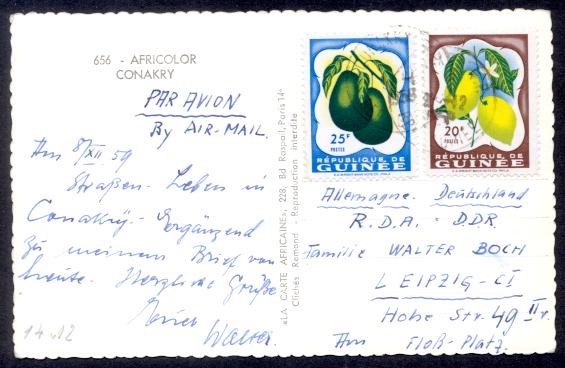 656 - AFRICOLOR
CONAKRY
PAR AVION
By AIR-MAIL
Am 8/XII 59
Straßen-Leben in
Conakry. Ergänzend
zu meinem Brief von
heute. Herzliche Grüße
Walter.
14.12
«LA CARTE AFRICAINE», 228, Bd Raspail, Paris 14e
Clichés Remond - Reproduction interdite
25F
POSTES
RÉPUBLIQUE DE
GUINÉE
20F
POSTES
RÉPUBLIQUE DE
GUINÉE
Allemagne Deutschland
R.D.A. - DDR
Familie WALTER BOCH
LEIPZIG - CI
Hohe Str. 49 II r.
Am Floß-Platz.